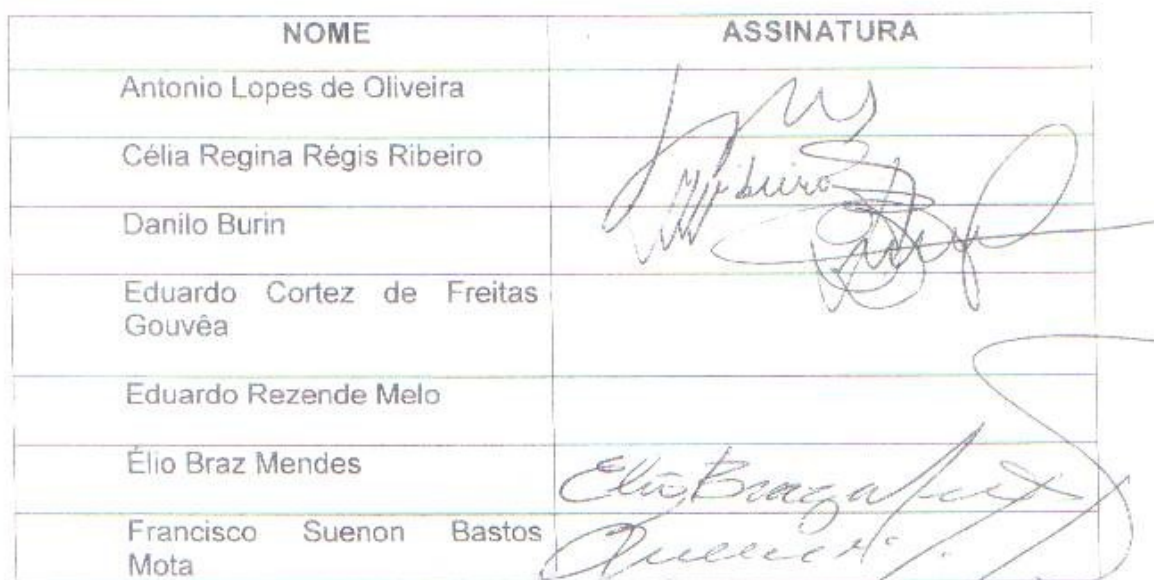 NOME ASSINATURA
Antonio Lopes de Oliveira
Célia Regina Régis Ribeiro
Ribeiro
Danilo Burin
Eduardo Cortez de Freitas
Gouvêa
Eduardo Rezende Melo
Élio Braz Mendes
Elio Braz
Francisco Suenon Bastos
Mota